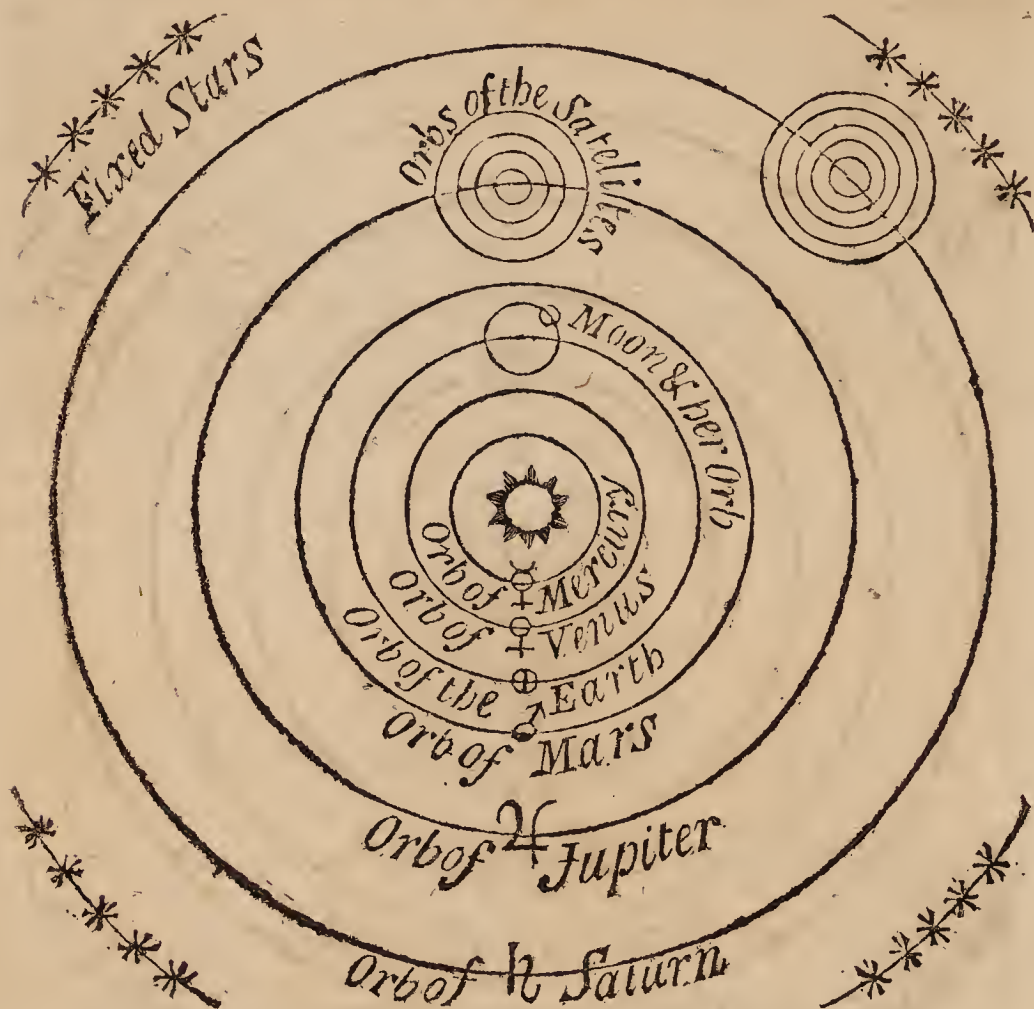 Fixed Stars
Orbs of the Satelites
Moon & her Orb
Orb of ☿ Mercury
Orb of ♀ Venus
Orb of the ⊕ Earth
Orb of ♂ Mars
Orb of ♃ Jupiter
Orb of ♄ Saturn